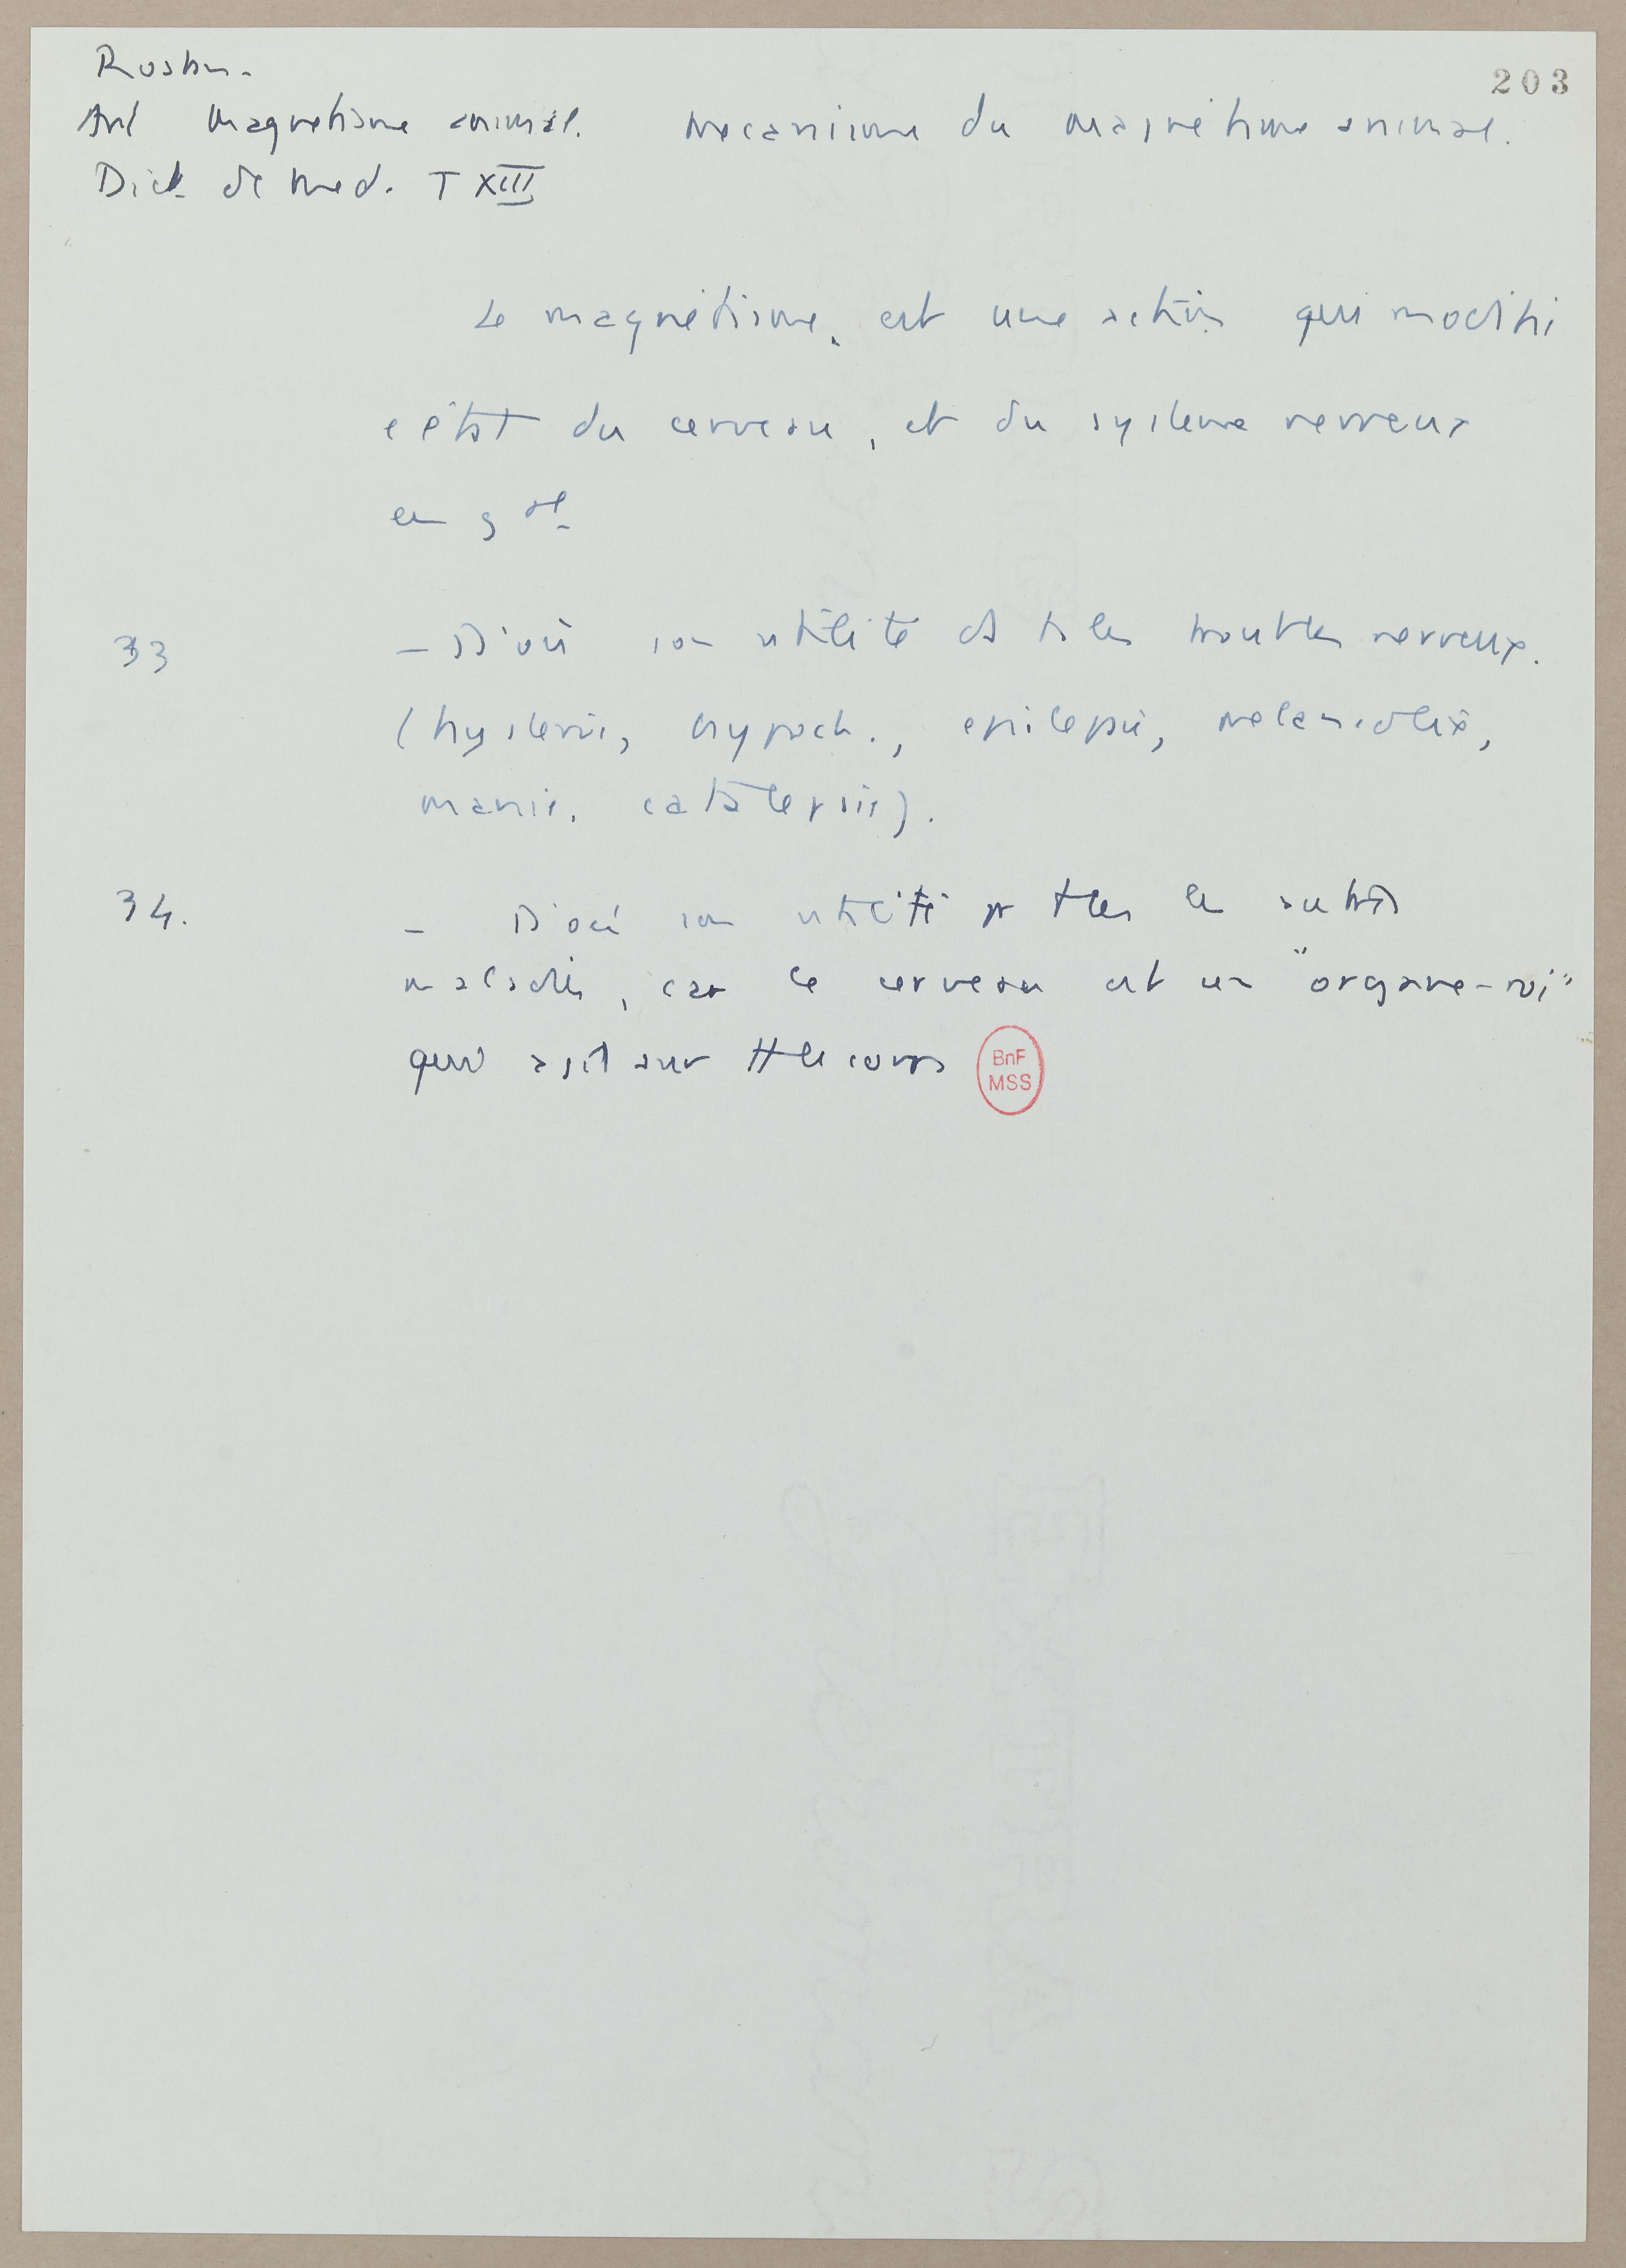 Rostan.
203
Art Magnetisme animal.
Mecanisme du magnétisme animal.
Dict de med. T XIII
Le magnétisme, est une action qui modifi
e état du cerveau, et du système nerveux
en gal
33
- D'où son utilité ds ts les troubles nerveux.
(hysterie, hypoch., epilepsie, melancolie,
manie, catalepsie).
34.
- D'où son utilité pr ttes les autres
maladies, car le cerveau est un "organe-roi"
qui agit sur tt le corps
BnF
MSS